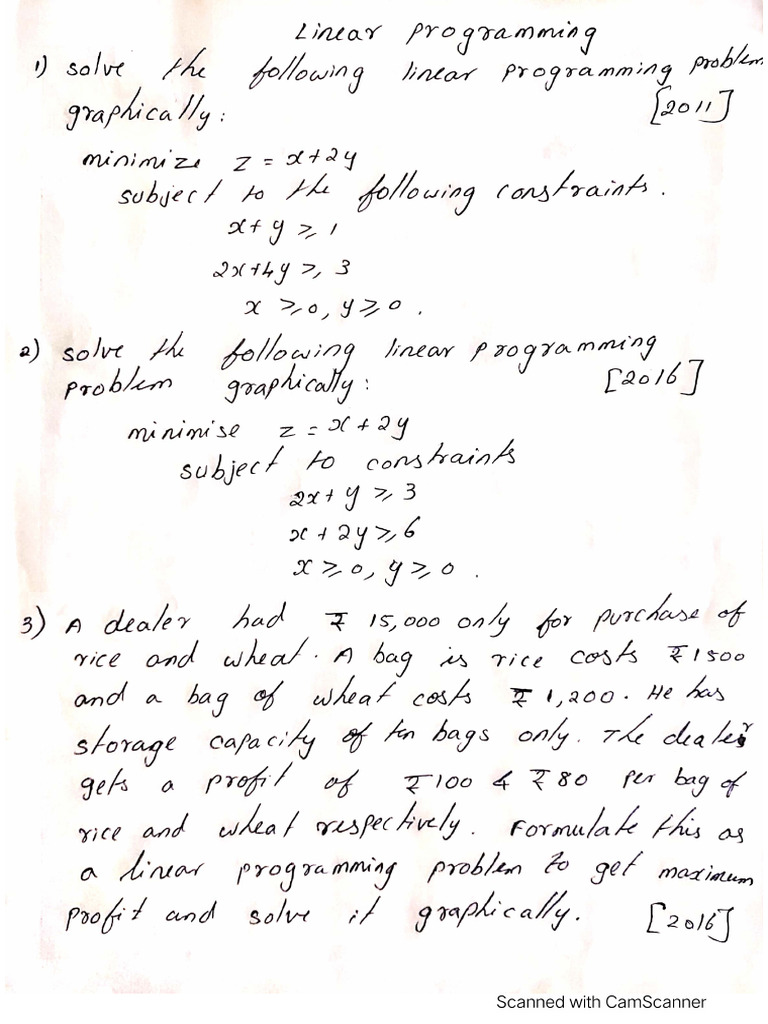 Linear programming
1) solve the following linear programming problem
graphically: [2011]
minimize z = x+2y
subject to the following constraints.
x+y ⩾ 1
2x+4y ⩾ 3
x ⩾ 0, y ⩾ 0.
2) solve the following linear programming
problem graphically: [2016]
minimise z = x + 2y
subject to constraints
2x+y ⩾ 3
x + 2y ⩾ 6
x ⩾ 0, y ⩾ 0.
3) A dealer had ₹ 15,000 only for purchase of
rice and wheat. A bag is rice costs ₹1500
and a bag of wheat costs ₹ 1,200. He has
storage capacity of ten bags only. The dealer
gets a profit of ₹100 & ₹80 per bag of
rice and wheat respectively. Formulate this as
a linear programming problem to get maximum
profit and solve it graphically. [2016]
Scanned with CamScanner